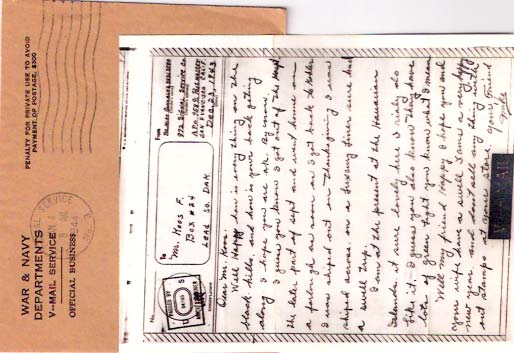 WAR & NAVY
DEPARTMENTS
V-MAIL SERVICE
OFFICIAL BUSINESS
PENALTY FOR PRIVATE USE TO AVOID
PAYMENT OF POSTAGE, $300
To
Mr. Koos F.
Box #24
Lead So. Dak.
From
San Francisco Calif.
Dec. 23, 1943
PASSED BY
Dear Mr. Koos.
Well Happy how is every thing on the
black hills, and how is your back getting
along I hope you are o.k. By now
I guess you know I got out of the Hospt
the later part of Sept and went home on
a furlough as soon as I got back to
I was shipped out on Thanksgiving I was
shiped across on a luxury liner sure had
a swell trip.
I am at the present at the Hawaiian
Islands it sure lovely here I realy do
like it. I guess you also know They have
lots of green light you know what I mean
Well my friend Happy I hope you and
your wife have a swell Xmas a very happy
new year and dont sell any thing
out stamps at your store
Your friend
V-MAIL